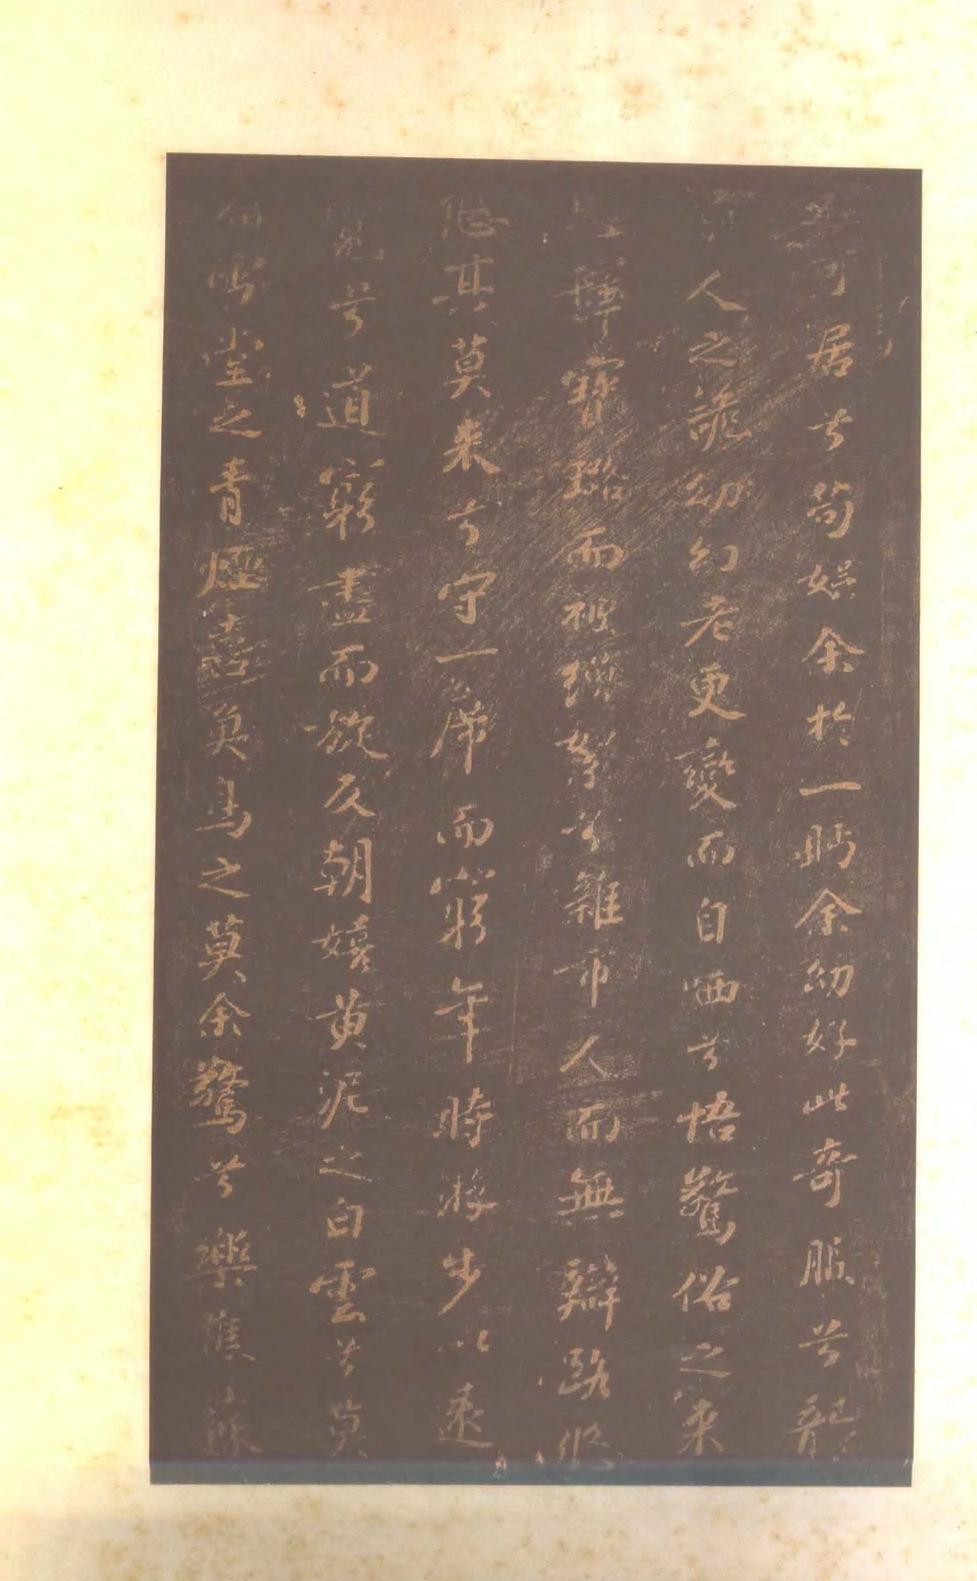 可居兮苟娛余於一眄余幼好此奇服兮襲
人之詭幼幻老更變而自哂兮悟驚俗之來
釋寶璐而被繒絮兮雜市人而無辯路悠
悠其莫來兮守一席而窮年時游步以遠
覽兮道窮盡而旋反朝嬉黃泥之白雲兮莫
宿雪堂之青煙喜魚鳥之莫余驚兮樂樵蘇